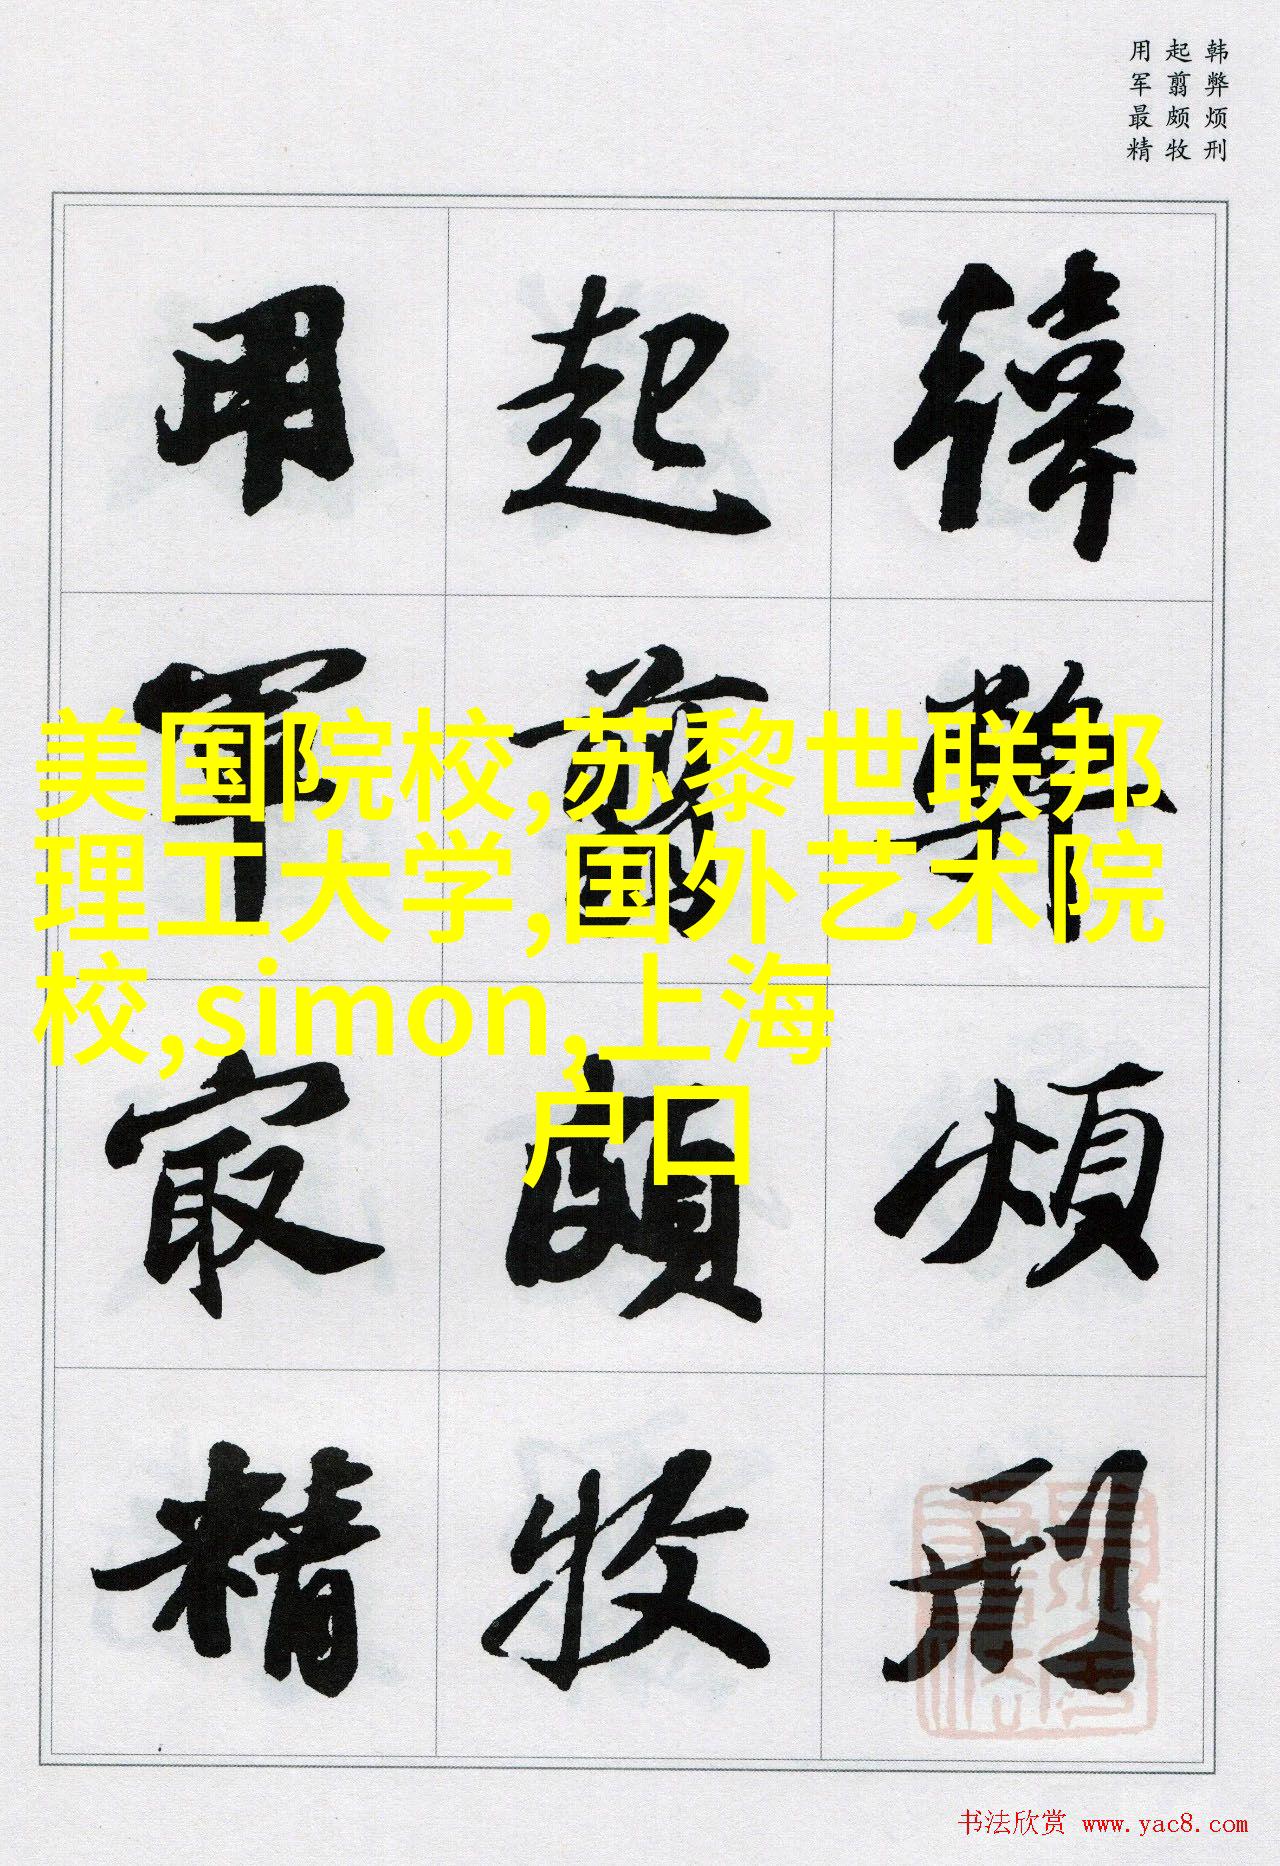 韩弊烦刑
起翦颇牧
用军最精
韓弊煩刑
起翦頗牧
用軍最精
美国院校,苏黎世联邦
理工大学,国外艺术院
校,simon,上海
户口
书法欣赏 www.yac8.com